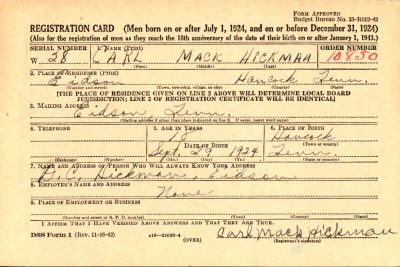 FORM APPROVED
Budget Bureau No. 33-R012-42
REGISTRATION CARD (Men born on or after July 1, 1924, and on or before December 31, 1924)
(Also for the registration of men as they reach the 18th anniversary of the date of their birth on or after January 1, 1943.)
SERIAL NUMBER 1. NAME (Print) ORDER NUMBER
W 28 CARL MACK HICKMAN 10850
(First) (Middle) (Last)
2. PLACE OF RESIDENCE (Print)
Eidson Hancock Tenn.
(Number and street) (Town, township, village, or city) (County) (State)
[THE PLACE OF RESIDENCE GIVEN ON LINE 2 ABOVE WILL DETERMINE LOCAL BOARD
JURISDICTION; LINE 2 OF REGISTRATION CERTIFICATE WILL BE IDENTICAL]
3. MAILING ADDRESS
Eidson Tenn.
[Mailing address if other than place indicated on line 2. If same, insert word same]
4. TELEPHONE 5. AGE IN YEARS 6. PLACE OF BIRTH
18 Hancock
DATE OF BIRTH (Town or county)
Sept. 29 1924 Tenn
(Exchange) (Number) (Mo.) (Day) (Yr.) (State or country)
7. NAME AND ADDRESS OF PERSON WHO WILL ALWAYS KNOW YOUR ADDRESS
Hickman Eidson
8. EMPLOYER'S NAME AND ADDRESS
None
9. PLACE OF EMPLOYMENT OR BUSINESS
(Number and street or R. F. D. number) (Town) (County) (State)
I AFFIRM THAT I HAVE VERIFIED ABOVE ANSWERS AND THAT THEY ARE TRUE.
DSS Form 1 (Rev. 11-16-42) (OVER) Carl Mack Hickman
(Registrant's signature)